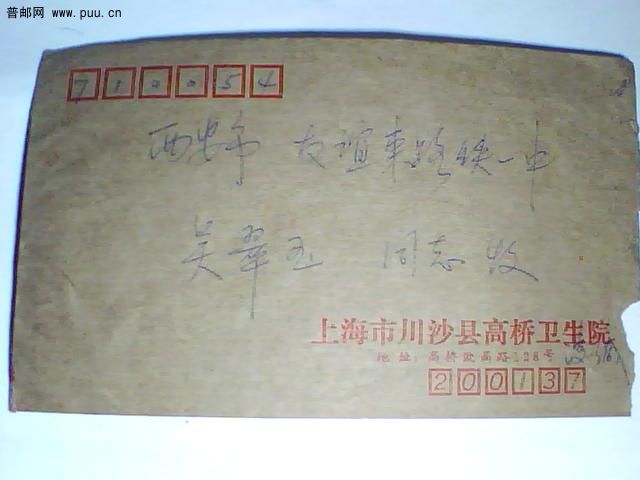 普邮网 www.puu.cn
710054
西安市 友谊东路铁一中
吴翠玉 同志收
上海市川沙县高桥卫生院
地址:高桥欧高路128号
200137